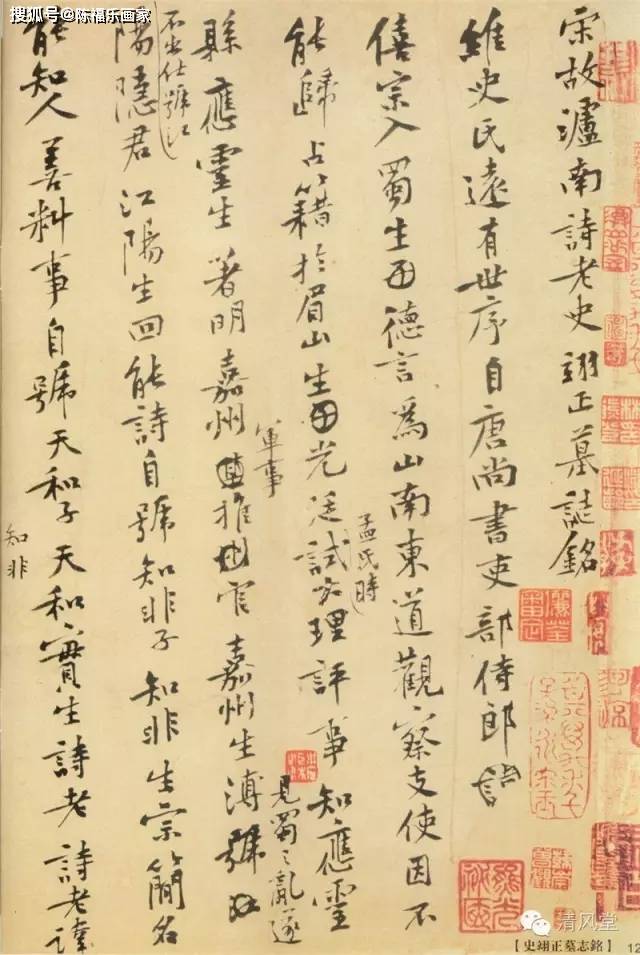 搜狐号@陈福乐画家
宋故瀘南詩老史翊正墓誌銘
維史氏遠有世序自唐尚書吏部侍郎
僖宗入蜀生德言為山南東道觀察支使因不
能歸占籍於眉山生光廷試大理評事知應靈
孟氏時
縣應靈生著明嘉州軍事推官嘉州生溥號
見蜀之亂遂
不出仕號江
陽隱君江陽生回能詩自號知非子知非生宗簡名
能知人善料事自號天和子天和實生詩老詩老諱
知非
清风堂
【史翊正墓志銘】
12